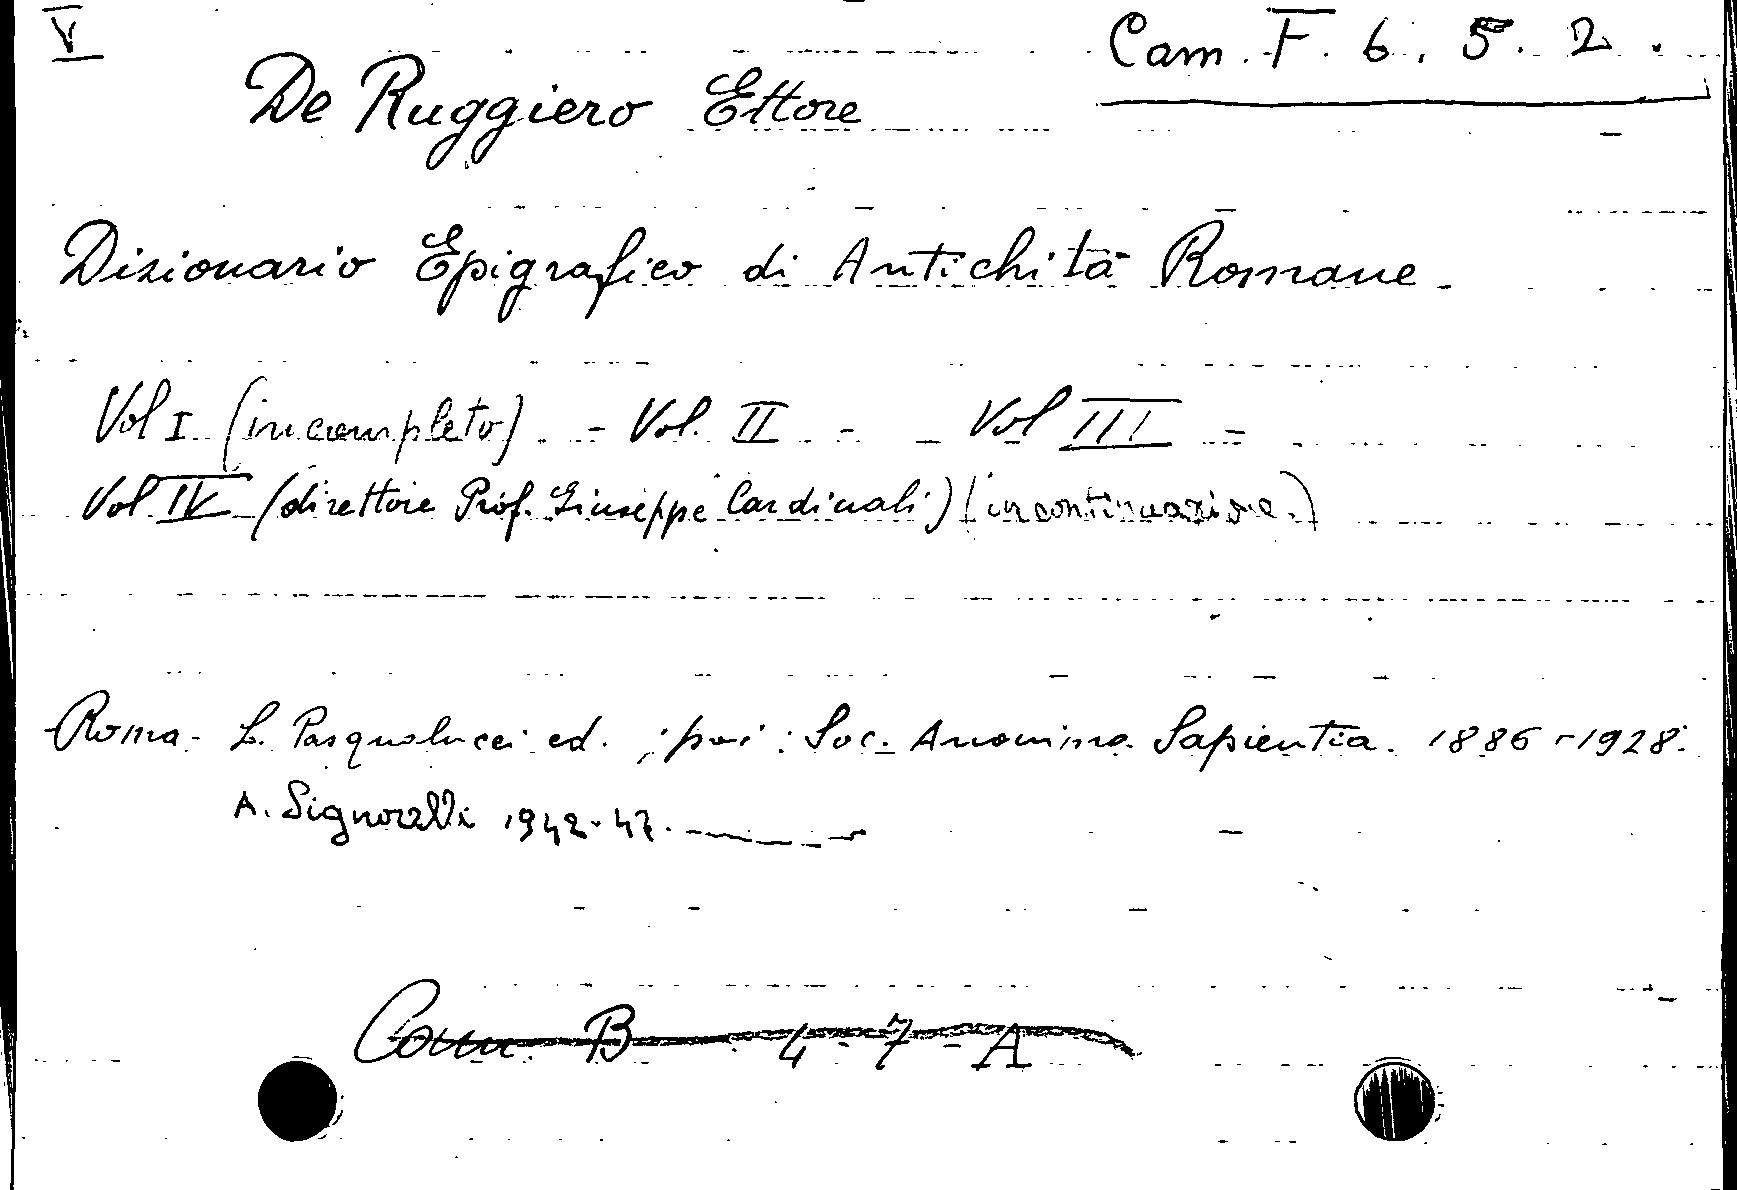 V
Cam. F. 6. 5. 2.
De Ruggiero Ettore
Dizionario Epigrafico di Antichità Romane
Vol I (incompleto) - Vol. II - - Vol III -
Vol IV (direttore Prof. Giuseppe Cardinali) (in continuazione.)
Roma - L. Pasqualucci ed. ; poi : Soc. Anonima Sapientia. 1886-1928.
A. Signorelli 1942-47.
Cam B 4-7-A